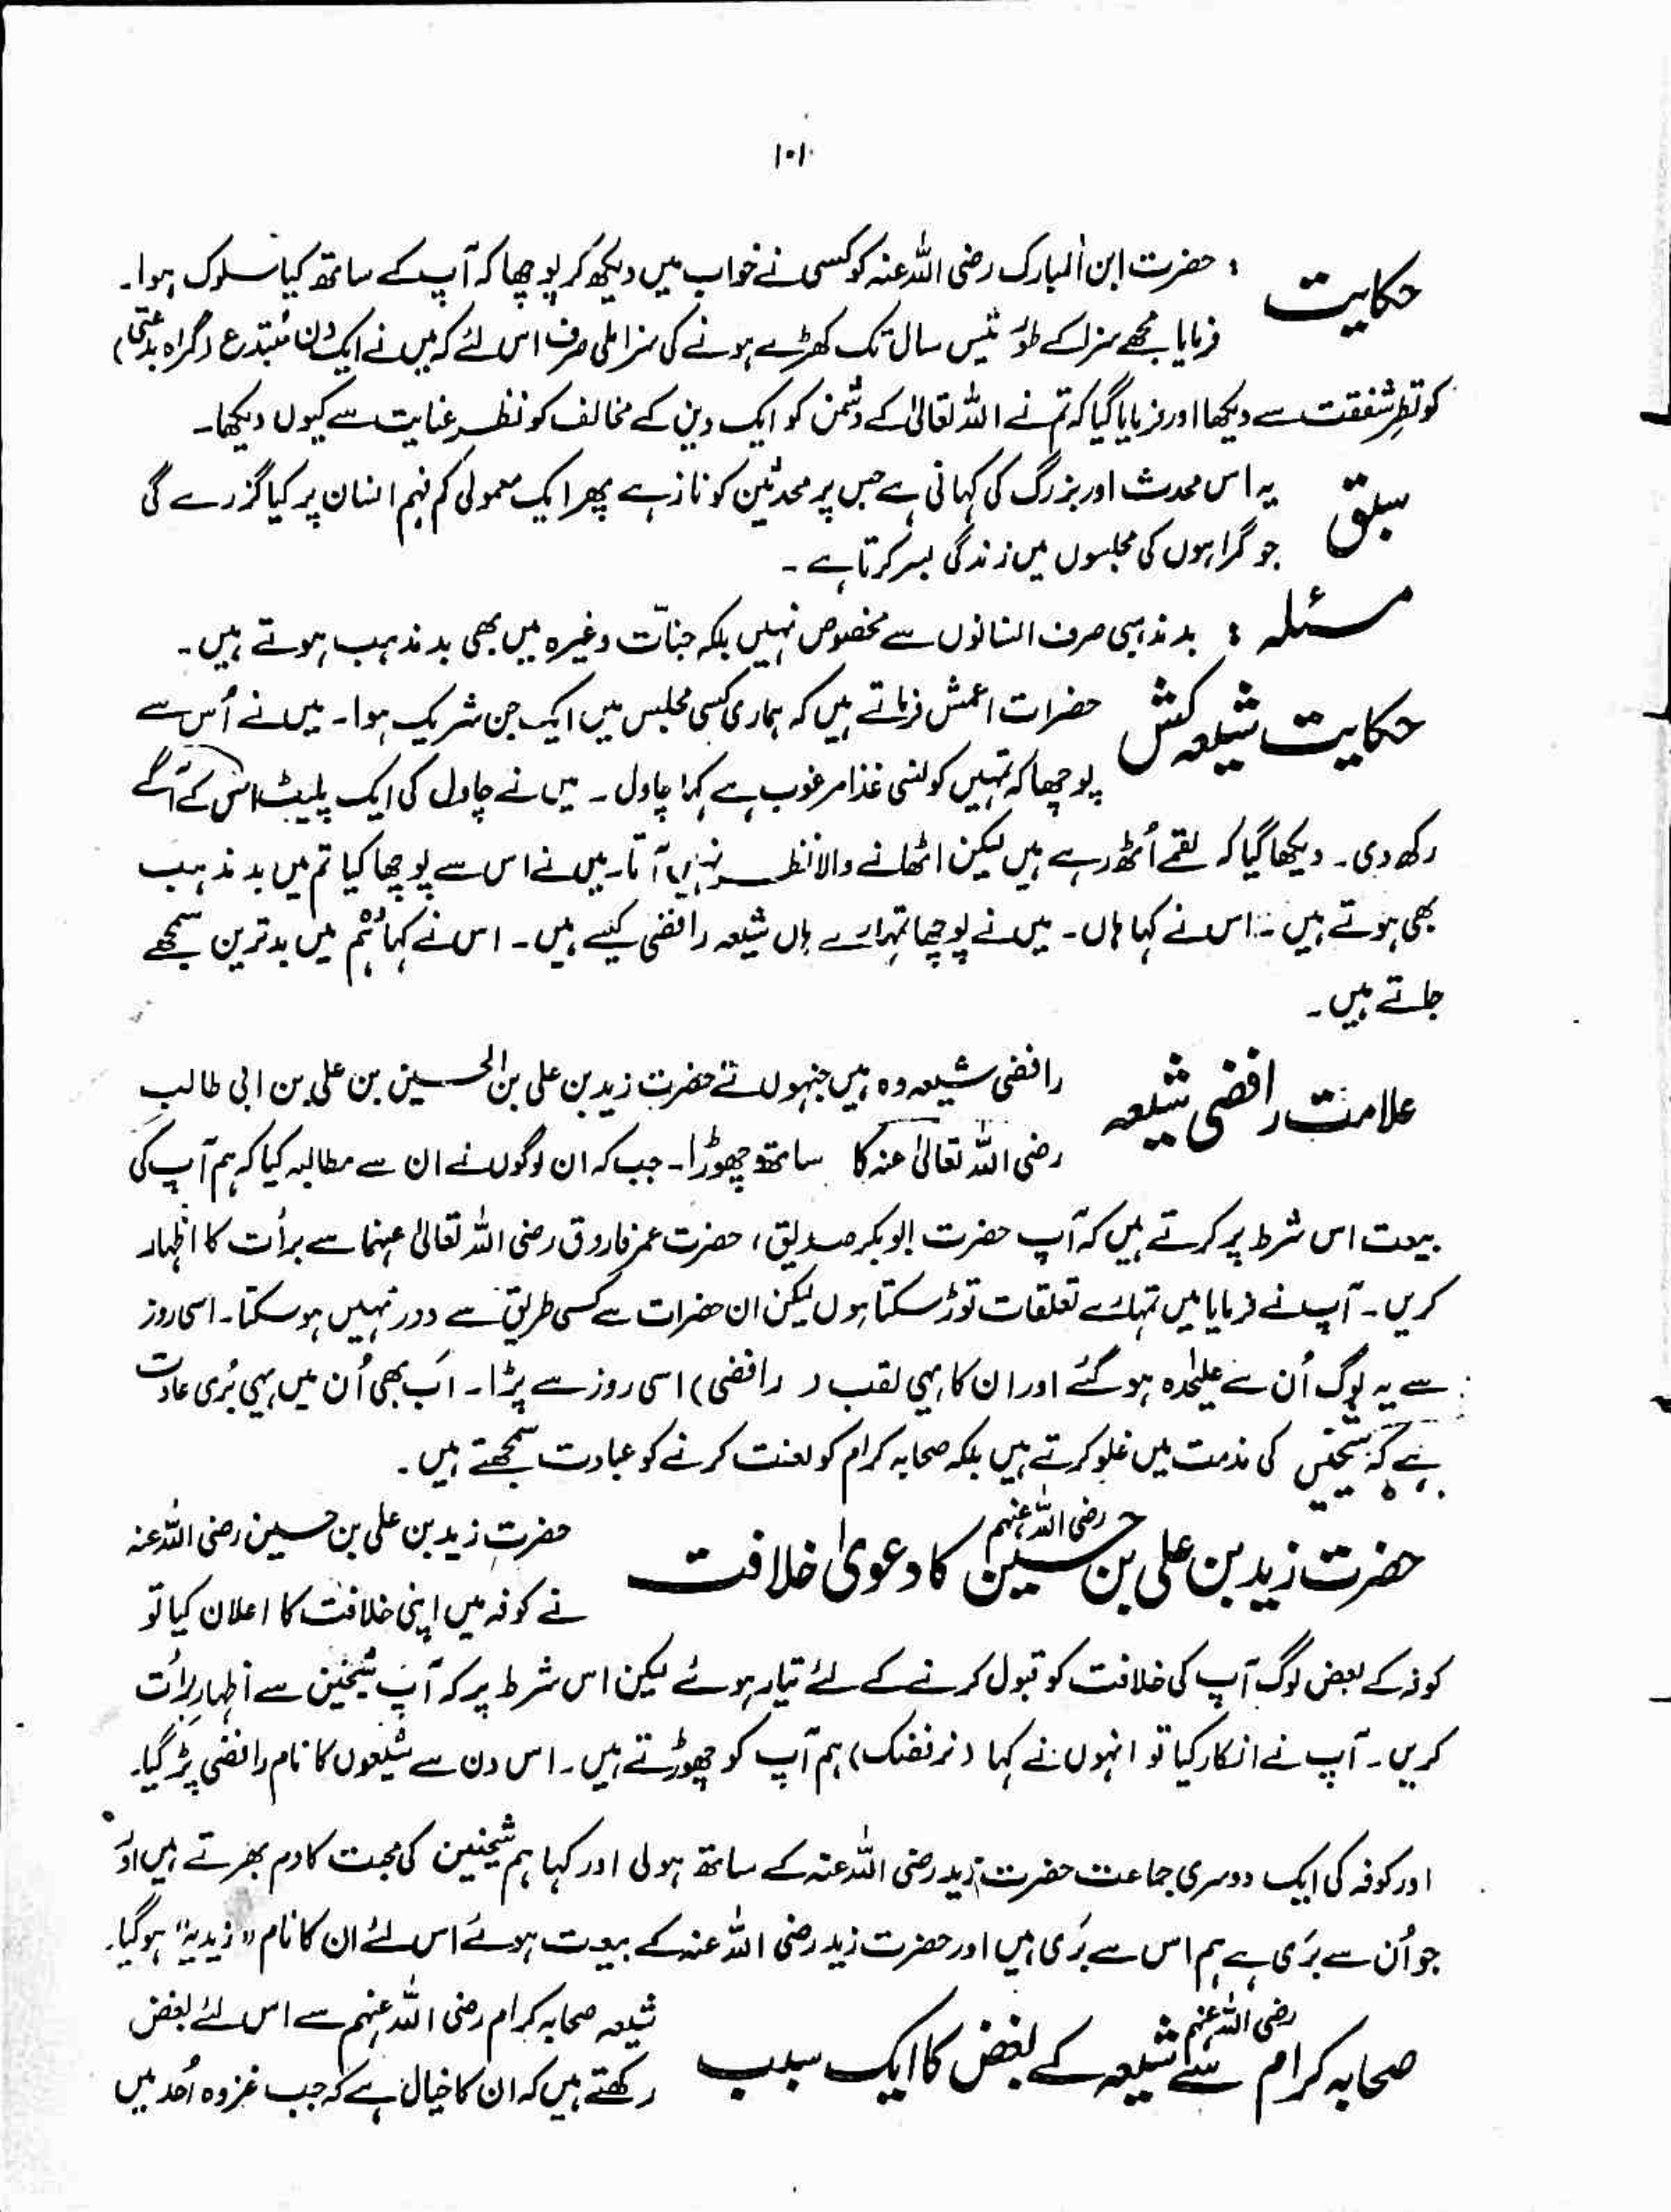 ۱۰۱
حکایت : حضرت ابن المبارک رضی اللہ عنہ کو کسی نے خواب میں دیکھ کر پوچھا کہ آپ کے ساتھ کیا سلوک ہوا۔
فرمایا مجھے سزا کے طور تیس سال تک کھڑے ہونے کی سزا ملی صرف اس لئے کہ میں نے ایک دن مبتدع (گمراہ بدعتی)
کو نظرِ شفقت سے دیکھا اور فرمایا گیا کہ تم نے اللہ تعالیٰ کے دشمن کو ایک دین کے مخالف کو نظر عنایت سے کیوں دیکھا۔
سبق یہ اس محدث اور بزرگ کی کہانی ہے جس پر محدثین کو ناز ہے پھر ایک معمولی کم فہم انسان پر کیا گزرے گی
جو گمراہوں کی مجلسوں میں زندگی بسر کرتا ہے ۔
مسئلہ : بد مذہبی صرف انسانوں سے مخصوص نہیں بلکہ جنّات وغیرہ میں بھی بد مذہب ہوتے ہیں ۔
حکایت شیعہ کش حضرات اعمش فرماتے ہیں کہ ہماری کسی مجلس میں ایک جن شریک ہوا ۔ میں نے اُس سے
پوچھا کہ تمہیں کونسی غذا مرغوب ہے کہا چاول ۔ میں نے چاول کی ایک پلیٹ اس کے آگے
رکھ دی ۔ دیکھا گیا کہ لقمے اُٹھ رہے ہیں لیکن اٹھانے والا نظر نہیں آتا۔ میں نے اس سے پوچھا کیا تم میں بد مذہب
بھی ہوتے ہیں ۔ اس نے کہا ہاں ۔ میں نے پوچھا تمہارے ہاں شیعہ رافضی کیسے ہیں ۔ اس نے کہا ہم میں بدترین سمجھے
جاتے ہیں ۔
علامت رافضی شیعہ رافضی شیعہ وہ ہیں جنہوں نے حضرت زید بن علی بن الحسین بن علی بن ابی طالب
رضی اللہ تعالیٰ عنہ کا ساتھ چھوڑا ۔ جب کہ ان لوگوں نے ان سے مطالبہ کیا کہ ہم آپ کی
بیعت اس شرط پر کرتے ہیں کہ آپ حضرت ابو بکر صدیق ، حضرت عمر فاروق رضی اللہ تعالیٰ عنہما سے برأت کا اظہار
کریں ۔ آپ نے فرمایا میں تمہارے تعلقات توڑ سکتا ہوں لیکن ان حضرات سے کسی طریق سے دور نہیں ہو سکتا ۔ اسی روز
سے یہ لوگ اُن سے علیٰحدہ ہو گئے اور ان کا یہی لقب ( رافضی ) اسی روز سے پڑا ۔ اَب بھی اُن میں یہی بُری عادت
ہے کہ شیخین کی مذمت میں غلو کرتے ہیں بلکہ صحابہ کرام کو لعنت کرنے کو عبادت سمجھتے ہیں ۔
حضرت زید بن علی بن حسین رضی اللہ عنہم کا دعویٰ خلافت حضرت زید بن علی بن حسین رضی اللہ عنہ
نے کوفہ میں اپنی خلافت کا اعلان کیا تو
کوفہ کے بعض لوگ آپ کی خلافت کو قبول کرنے کے لئے تیار ہوئے لیکن اس شرط پر کہ آپ شیخین سے اظہارِ برأت
کریں ۔ آپ نے انکار کیا تو انہوں نے کہا ( نرفضک ) ہم آپ کو چھوڑتے ہیں ۔ اس دن سے شیعوں کا نام رافضی پڑ گیا۔
اور کوفہ کی ایک دوسری جماعت حضرت زید رضی اللہ عنہ کے ساتھ ہولی اور کہا ہم شیخین کی محبت کا دم بھرتے ہیں اور
جو اُن سے بَری ہے ہم اس سے بَری ہیں اور حضرت زید رضی اللہ عنہ کے بیعت ہوئے اس لئے ان کا نام "زیدیہ" ہو گیا۔
صحابہ کرام رضی اللہ عنہم سے شیعہ کے بغض کا ایک سبب شیعہ صحابہ کرام رضی اللہ عنہم سے اس لئے بغض
رکھتے ہیں کہ ان کا خیال ہے کہ جب غزوہ اُحد میں